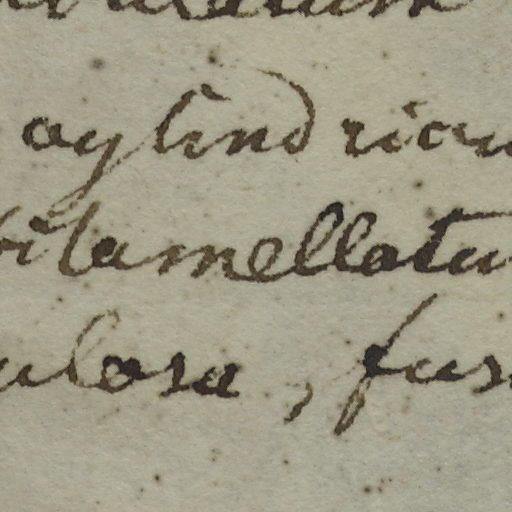 cylindricu
bilamellatu
ulosa, fus